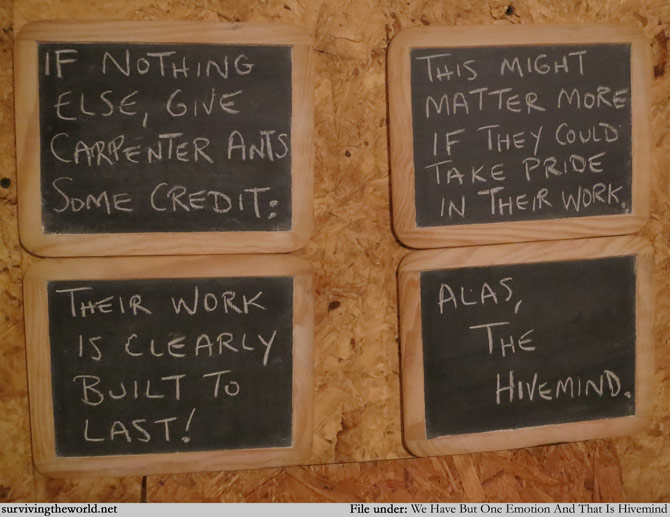 IF NOTHING
ELSE, GIVE
CARPENTER ANTS
SOME CREDIT:
THEIR WORK
IS CLEARLY
BUILT TO
LAST!
THIS MIGHT
MATTER MORE
IF THEY COULD
TAKE PRIDE
IN THEIR WORK.
ALAS,
THE
HIVEMIND.
survivingtheworld.net
File under: We Have But One Emotion And That Is Hivemind